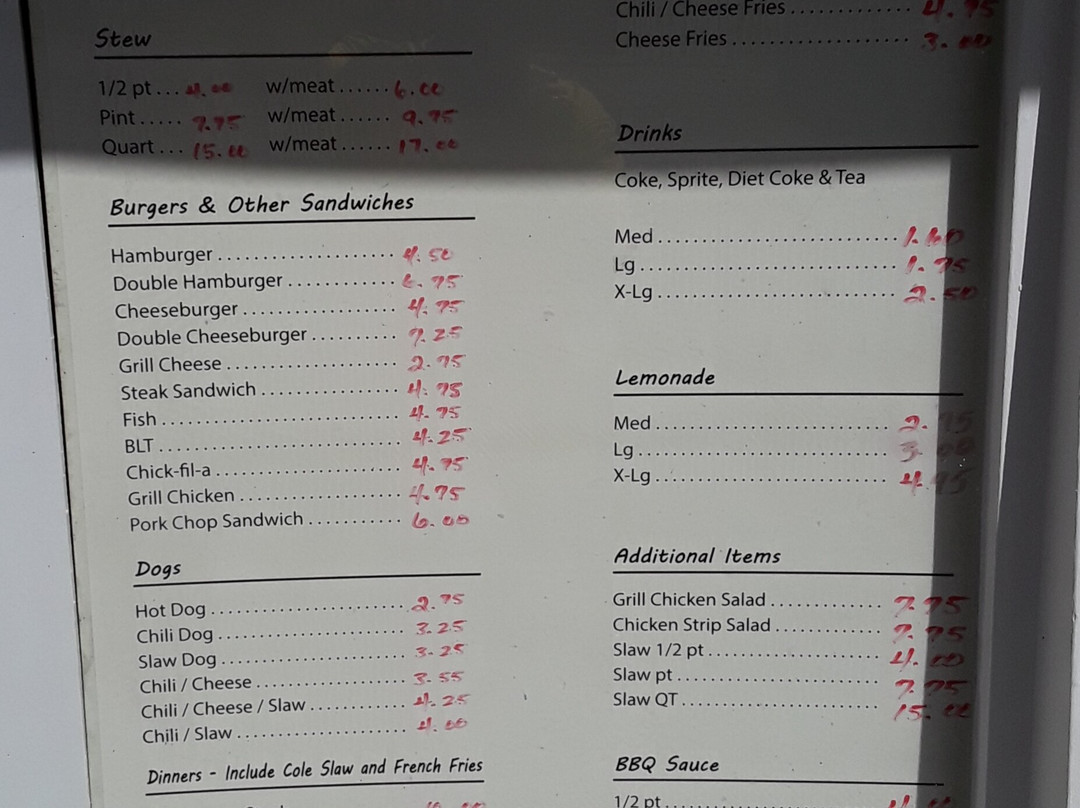 Stew
1/2 pt ... 4.00 w/meat ...... 6.00
Pint ..... 7.75 w/meat ...... 9.75
Quart ... 15.00 w/meat ...... 17.00
Burgers & Other Sandwiches
Hamburger .................... 4.50
Double Hamburger ............ 6.75
Cheeseburger ................. 4.75
Double Cheeseburger .......... 7.25
Grill Cheese .................... 2.75
Steak Sandwich ................ 4.75
Fish ............................ 4.75
BLT ............................ 4.25
Chick-fil-a ..................... 4.75
Grill Chicken ................... 4.75
Pork Chop Sandwich ........... 6.00
Dogs
Hot Dog ....................... 2.75
Chili Dog ...................... 3.25
Slaw Dog ...................... 3.25
Chili / Cheese .................. 3.55
Chili / Cheese / Slaw ............ 4.25
Chili / Slaw .................... 4.00
Dinners - Include Cole Slaw and French Fries
Chili / Cheese Fries ............. 4.75
Cheese Fries .................... 3.00
Drinks
Coke, Sprite, Diet Coke & Tea
Med ............................ 1.60
Lg .............................. 1.75
X-Lg ........................... 2.50
Lemonade
Med ........................... 2.75
Lg .............................
X-Lg .......................... 4.75
Additional Items
Grill Chicken Salad ............. 7.75
Chicken Strip Salad ............. 7.75
Slaw 1/2 pt ..................... 4.00
Slaw pt ......................... 7.75
Slaw QT ........................ 15.00
BBQ Sauce
1/2 pt ..........................